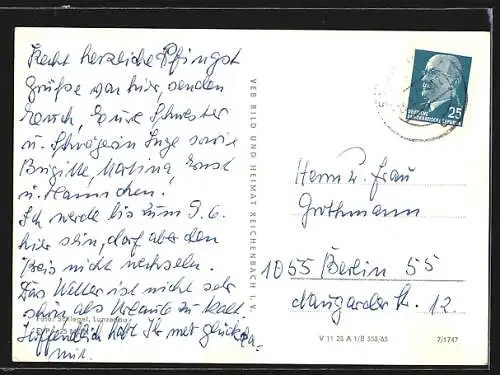 Recht herzliche Pfingst
Grüße von hier, senden
Euch, Eure Schwester
u. Schwägerin Inge sowie
Brigitte, Martina, Ernst
u. Hannchen.
Ich werde bis zum 9.6.
hier sein, darf aber den
Kreis nicht wechseln.
Das Wetter ist nicht sehr
schön als Urlaub zu kalt.
Hoffentlich habt Ihr mehr Glück da-
mit.
Foto: Schlegel, Lunzenau
VEB BILD UND HEIMAT REICHENBACH I. V.
25
DEUTSCHE
DEMOKRATISCHE REPUBLIK
Herrn u. Frau
Grothmann
1055 Berlin 55
Naugarder Str. 12.
V 11 28 A 1/B 558/65
7/1747